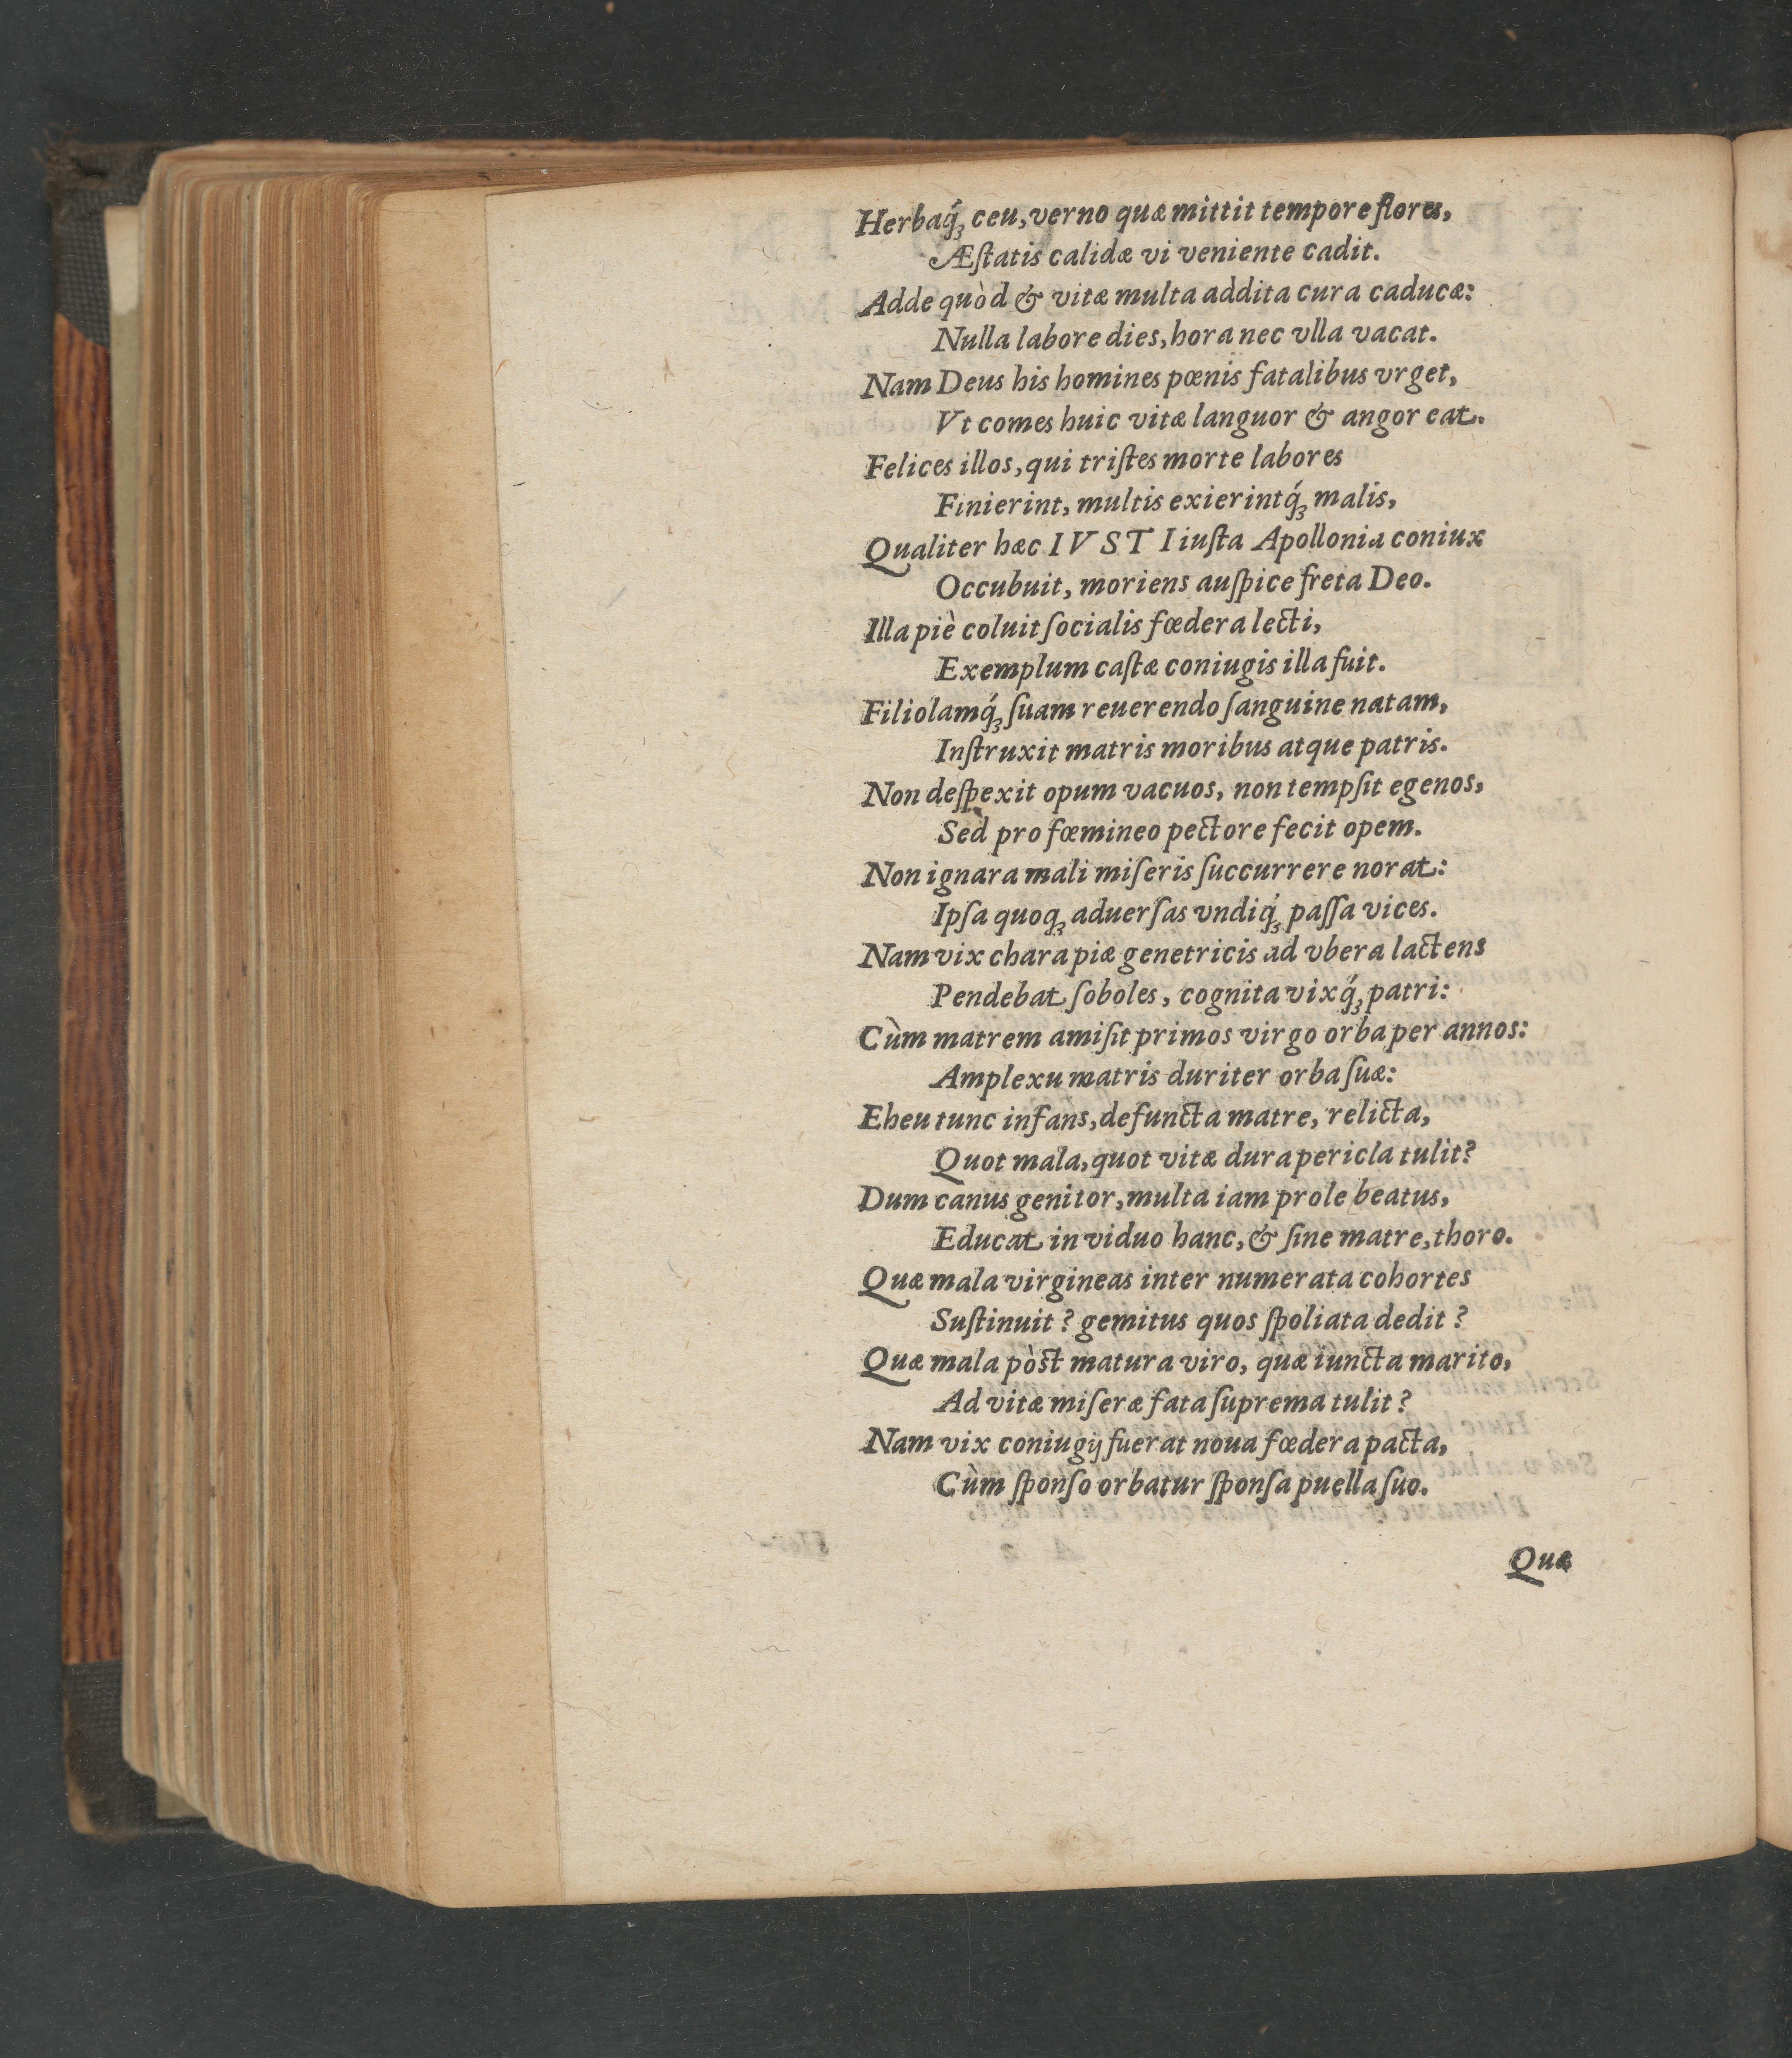 Herbaq́ꝫ ceu, verno quæ mittit tempore flores,
Æſtatis calidæ vi veniente cadit.
Adde quòd & vitæ multa addita cura caducæ:
Nulla labore dies, hora nec vlla vacat.
Nam Deus his homines pœnis fatalibus vrget,
Vt comes huic vitæ languor & angor eat.
Felices illos, qui triſtes morte labores
Finierint, multis exierintq́ꝫ malis,
Qualiter hæc IVSTI iuſta Apollonia coniux
Occubuit, moriens auſpice freta Deo.
Illa piè coluit ſocialis fœdera lecti,
Exemplum caſtæ coniugis illa fuit.
Filiolamq́ꝫ ſuam reuerendo ſanguine natam,
Inſtruxit matris moribus atque patris.
Non deſpexit opum vacuos, non tempſit egenos,
Sed pro fœmineo pectore fecit opem.
Non ignara mali miſeris ſuccurrere norat:
Ipſa quoqꝫ aduerſas vndiq́ꝫ paſſa vices.
Nam vix chara piæ genetricis ad vbera lactens
Pendebat ſoboles, cognita vixq́ꝫ patri:
Cùm matrem amiſit primos virgo orba per annos:
Amplexu matris duriter orba ſuæ:
Eheu tunc infans, defuncta matre, relicta,
Quot mala, quot vitæ dura pericla tulit?
Dum canus genitor, multa iam prole beatus,
Educat in viduo hanc, & ſine matre, thoro.
Quæ mala virgineas inter numerata cohortes
Suſtinuit? gemitus quos ſpoliata dedit?
Quæ mala pòst matura viro, quæ iuncta marito,
Ad vitæ miſeræ fata ſuprema tulit?
Nam vix coniugij fuerat noua fœdera pacta,
Cùm ſponſo orbatur ſponſa puella ſuo.
Quæ